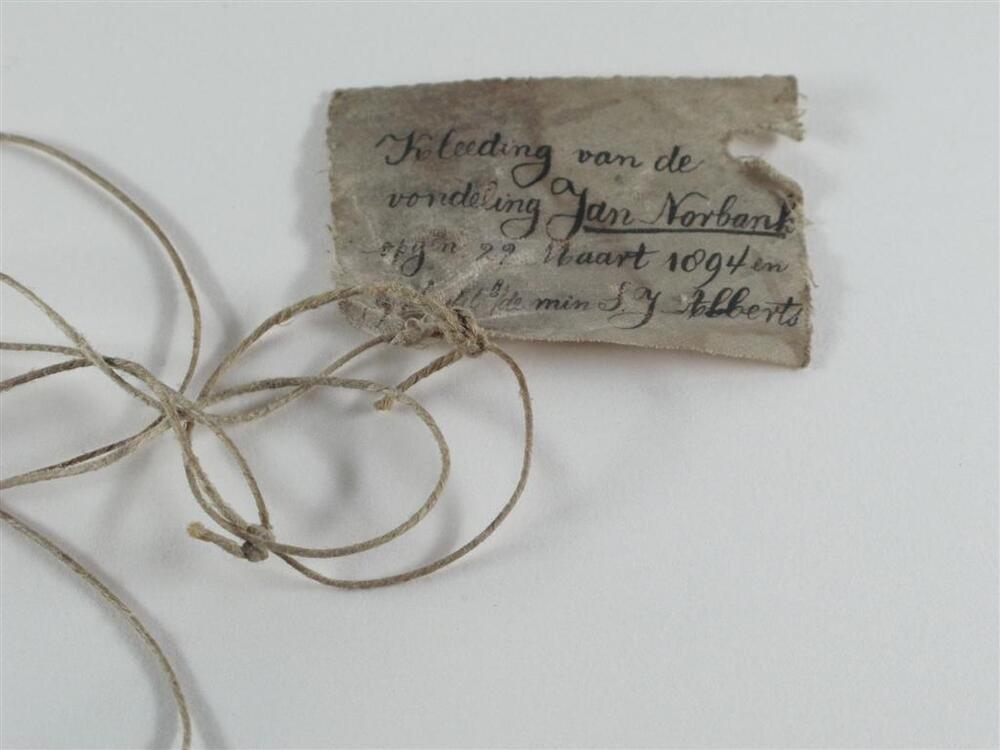 Kleeding van de
vondeling Jan Norbank
opgn 22 Maart 1894 en
de min S. J. Abberts